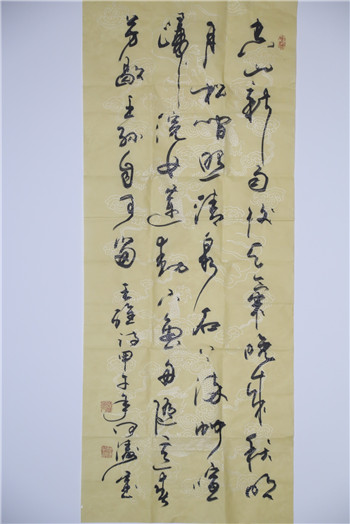 空山新雨後天氣晚來秋明
月松間照清泉石上流竹喧
歸浣女蓮動下漁舟隨意春
芳歇王孫自可留 王維詩甲午年